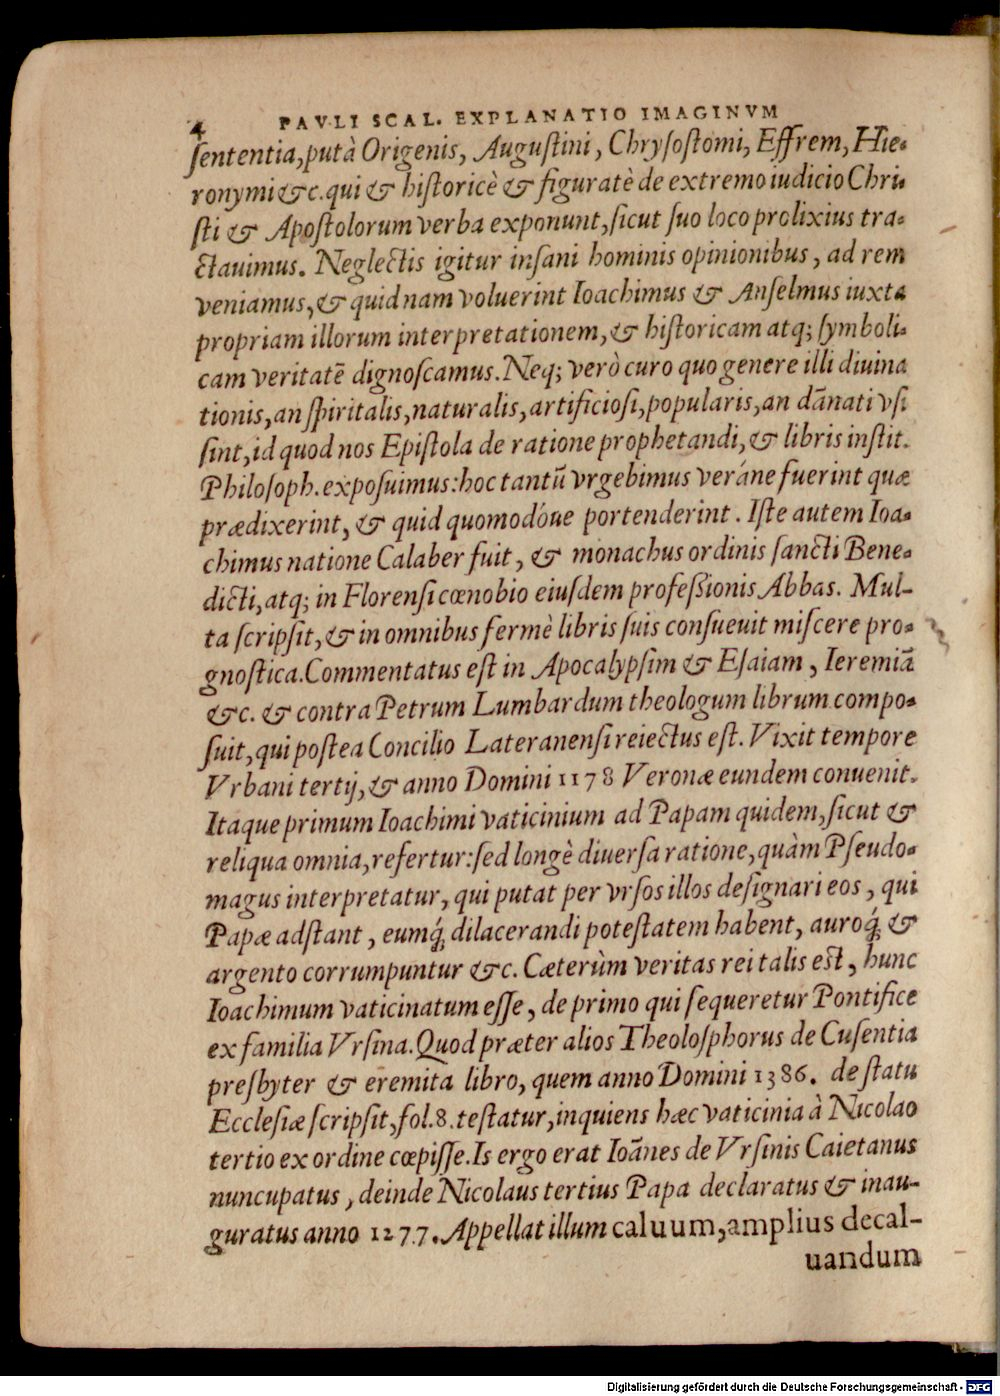 4 PAVLI SCAL. EXPLANATIO IMAGINVM
ſententia, putà Origenis, Auguſtini, Chryſoſtomi, Effrem, Hie-
ronymi &c. qui & hiſtoricè & figuratè de extremo iudicio Chri-
ſti & Apoſtolorum verba exponunt, ſicut ſuo loco prolixius tra-
ctauimus. Neglectis igitur inſani hominis opinionibus, ad rem
veniamus, & quid nam voluerint Ioachimus & Anſelmus iuxta
propriam illorum interpretationem, & hiſtoricam atq; ſymboli-
cam veritatē dignoſcamus. Neq; verò curo quo genere illi diuina
tionis, an ſpiritalis, naturalis, artificioſi, popularis, an dānati vſi
ſint, id quod nos Epiſtola de ratione prophetandi, & libris inſtit.
Philoſoph. expoſuimus: hoc tantū vrgebimus veráne fuerint quæ
prædixerint, & quid quomodóue portenderint. Iſte autem Ioa-
chimus natione Calaber fuit, & monachus ordinis ſancti Bene-
dicti, atq; in Florenſi cœnobio eiuſdem profeſsionis Abbas. Mul-
ta ſcripſit, & in omnibus fermè libris ſuis conſueuit miſcere pro-
gnoſtica. Commentatus eſt in Apocalypſim & Eſaiam, Ieremiā
&c. & contra Petrum Lumbardum theologum librum compo-
ſuit, qui poſtea Concilio Lateranenſi reiectus eſt. Vixit tempore
Vrbani tertij, & anno Domini 1178 Veronæ eundem conuenit.
Itaque primum Ioachimi vaticinium ad Papam quidem, ſicut &
reliqua omnia, refertur: ſed longè diuerſa ratione, quàm Pſeudo-
magus interpretatur, qui putat per vrſos illos deſignari eos, qui
Papæ adſtant, eumq́; dilacerandi poteſtatem habent, auroq́; &
argento corrumpuntur &c. Cæterùm veritas rei talis eſt, hunc
Ioachimum vaticinatum eſſe, de primo qui ſequeretur Pontifice
ex familia Vrſina. Quod præter alios Theoloſphorus de Cuſentia
presbyter & eremita libro, quem anno Domini 1386. de ſtatu
Eccleſiæ ſcripſit, fol. 8. teſtatur, inquiens hæc vaticinia à Nicolao
tertio ex ordine cœpiſſe. Is ergo erat Ioānes de Vrſinis Caietanus
nuncupatus, deinde Nicolaus tertius Papa declaratus & inau-
guratus anno 1277. Appellat illum caluum, amplius decal-
uandum
Digitalisierung gefördert durch die Deutsche Forschungsgemeinschaft - DFG